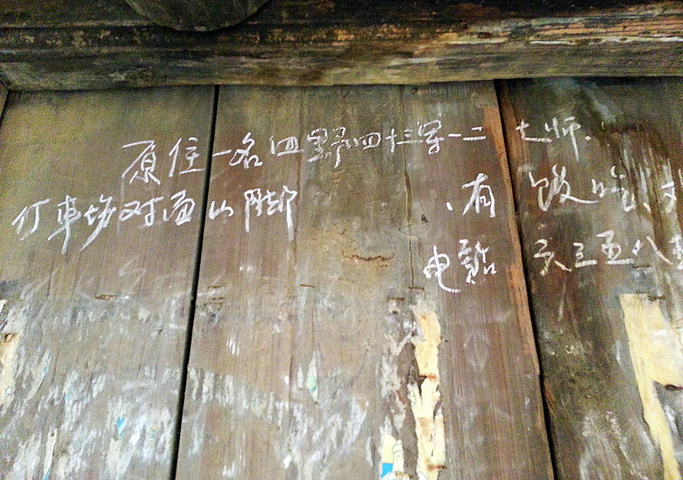 原住一名四野四十三军一二七师.
仃車场对面山脚、有饭吃、
电話六三五八